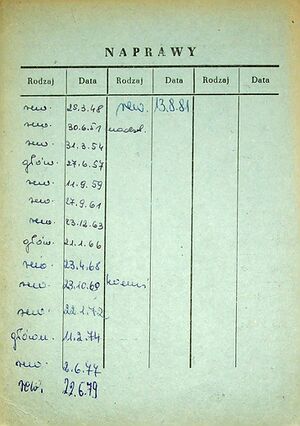 NAPRAWY
Rodzaj Data Rodzaj Data Rodzaj Data
rew. 25.3.48 rew. 13.8.81
rew. 30.6.51
rew. 31.3.54
główn. 27.6.57
rew. 11.9.59
rew. 27.9.61
rew. 23.12.63
główn. 21.1.66
rew. 23.4.68
rew. 23.10.69
rew. 22.1.72
główn. 11.2.74
rew. 2.6.77
rew. 22.6.79